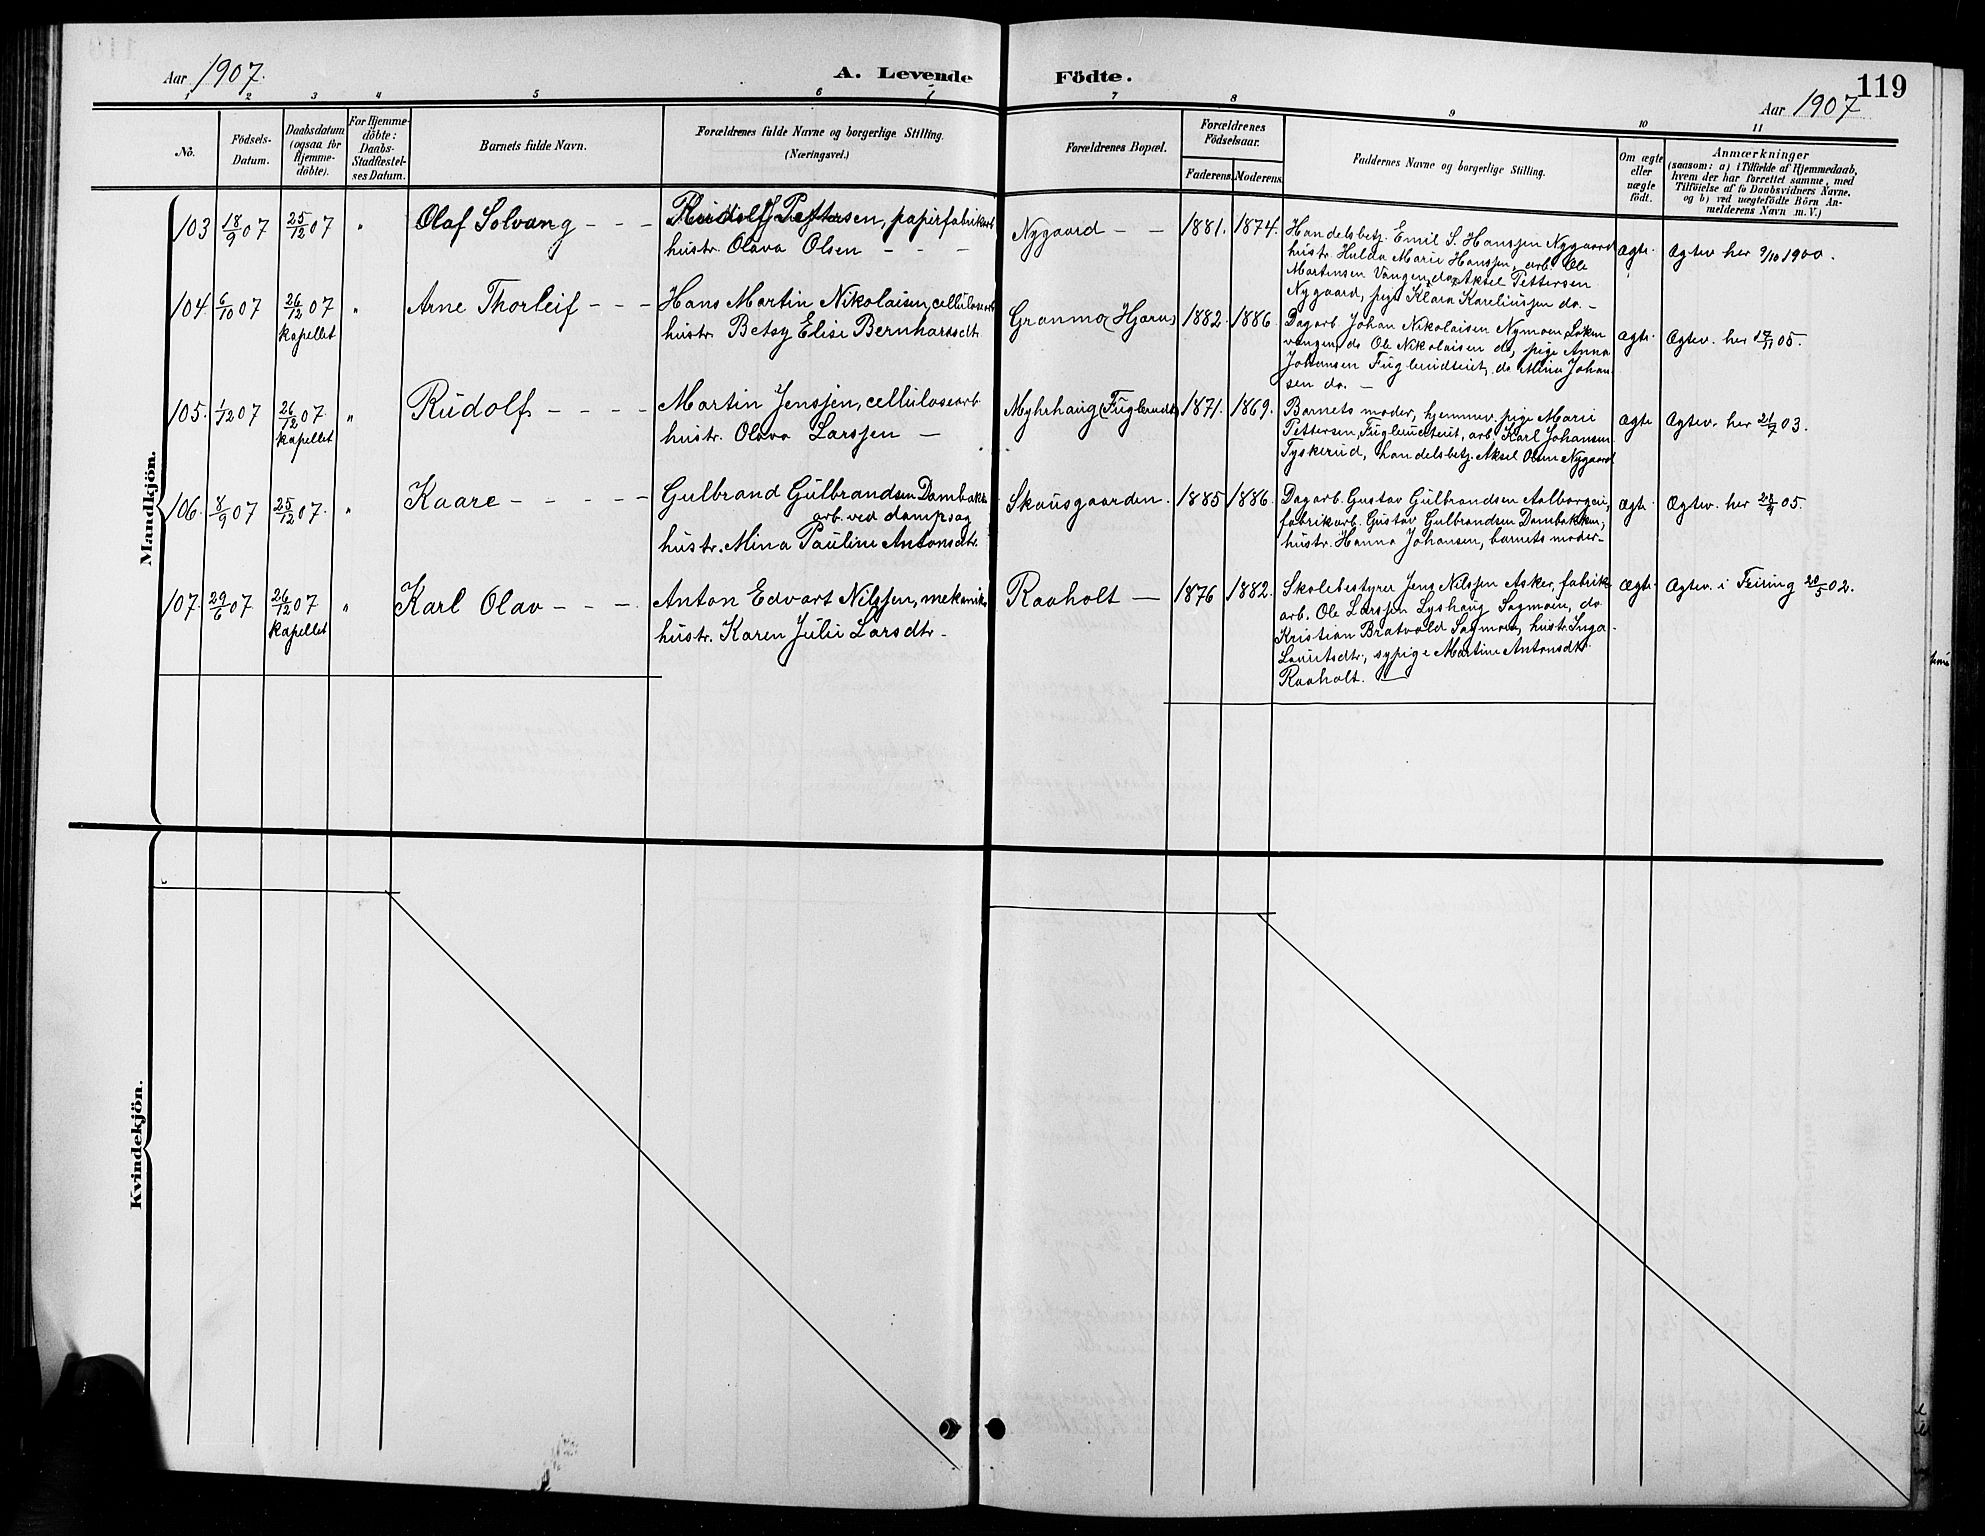 Aar 1907.
A. Levende Födte.
119
Aar 1907
1 2 3 4 5 6 7 8 9 10 11
No.
Födsels-
Datum.
Daabsdatum
(ogsaa for
Hjemme-
döbte).
For Hjemme-
döbte:
Daabs-
Stadfæstel-
ses Datum.
Barnets fulde Navn.
Forældrenes fulde Navne og borgerlige Stilling.
(Næringsvei.)
Forældrenes Bopæl.
Forældrenes
Födselsaar.
Faderens. Moderens.
Faddernes Navne og borgerlige Stilling.
Om ægte
eller
uægte
födt.
Anmærkninger
(saasom: a) i Tilfælde af Hjemmedaab,
hvem der har forrettet samme, med
Tilföielse af to Daabsvidners Navne,
og b) ved uægtefödte Börn An-
melderens Navn m. V.)
Mandkjön.
103 18/9 07 25/12 07 " Olaf Solvang - - -
Pettersen, papirfabrikarb
hustr. Olava Olsen - - -
Nygaard - - 1881. 1874.
Handelsbetj. Emil S. Hanssen Nygaard
hustr. Hulda Marie Hanssen, arb. Ole
Martinsen Vangen, do Aksel Pettersen
Nygaard, pige Klara Kareliussen do. -
Ægte. Ægtev. her 9/10 1900.
104. 6/10 07 26/12 07 " Arne Thorleif - - -
kapellet
Hans Martin Nikolaisen, cellulosearb
hustr. Betsy Elise Bernhardsdtr.
Granmo (Hjera) 1882. 1886.
Dagarb. Johan Nikolaisen Nymoen Løken
vangen, do Ole Nikolaisen do, pige Anna
Johansen Fuglerudteiet, do Mina Johan
sen do. -
Ægte. Ægtev. her 17/11 05.
105. 1/12 07 26/12 07. " Rudolf - - - -
kapellet
Martin Jenssen, cellulosearb.
hustr. Olava Larssen -
Myhrhaug (Fuglerudt) 1871. 1869.
Barnets moder, hjemmev. pige Marie
Pettersen, Fuglerudteiet, arb. Karl Johansen
Tyskerud, handelsbetj. Aksel Olsen Nygaard
Ægte Ægtev. her 21/7 03.
106. 8/9 07 25/12 07. " Kaare - - - - -
Gulbrand Gulbrandsen Dambakk
arb. ved dampsag
hustr. Mina Pauline Antonsdtr.
Skausgaarden. 1885 1886.
Dagarb. Gustav Gulbrandsen Aalborgen,
fabrikarb. Gustav Gulbrandsen Dambakken,
hustr. Hanna Johansen, barnets moder -
Ægte. Ægtev. her 28/9 05.
107. 29/6 07 26/12 07 " Karl Olav - - -
kapellet
Anton Edvart Nilssen, mekanik.
hustr. Karen Julie Larsdtr -
Raaholt - 1876 1882.
Skolebestyrer Jens Nilssen Asker, fabrik
arb. Ole Larssen Lyshaug Sagmoen, do
Kristian Bratvold Sagmoen, hustr. Inga
Lauritsdtr, sypige Martine Antonsdtr
Raaholt. -
Ægte Ægtev. i Feiring 20/5 02.
Kvindekjön.